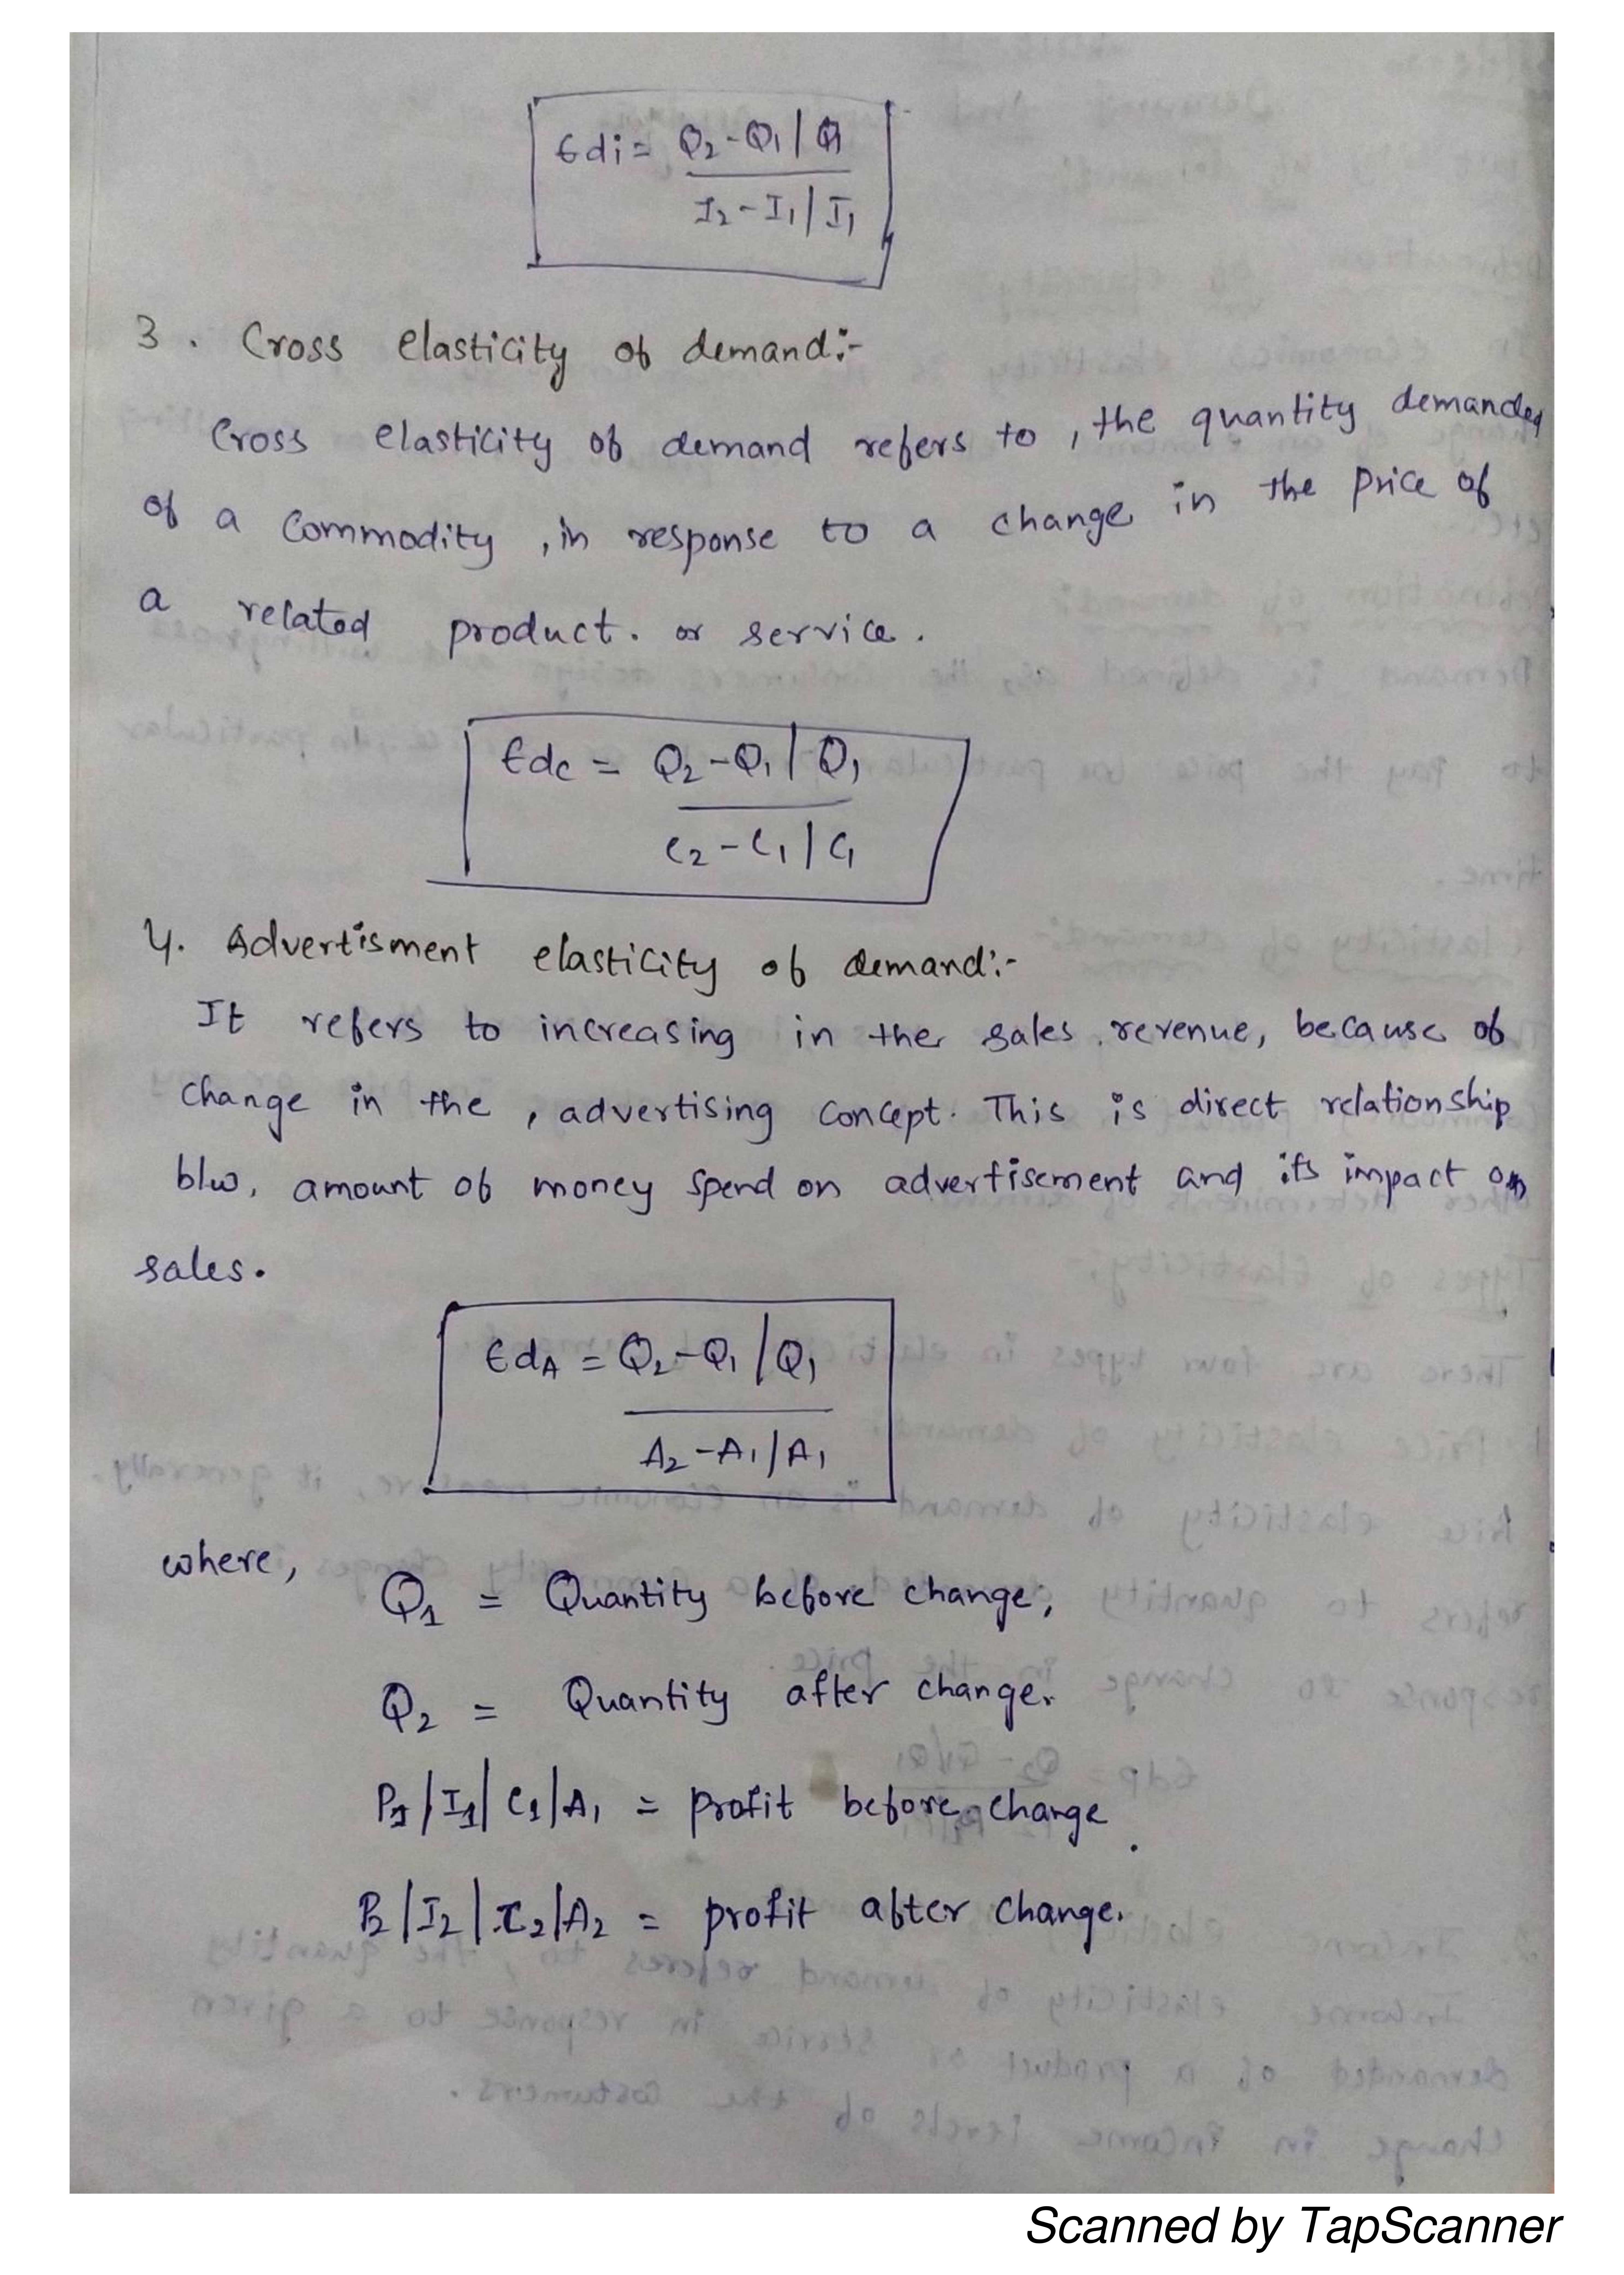 Edi = Q2-Q1 | Q1
I2-I1 | I1
3. Cross elasticity of demand:-
Cross elasticity of demand refers to, the quantity demanded
of a commodity, in response to a change in the price of
a related product. or service.
Edc = Q2-Q1 | Q1
C2-C1 | C1
4. Advertisment elasticity of demand:-
It refers to increasing in the sales revenue, because of
change in the, advertising concept. This is direct relationship
b/w, amount of money spend on advertisement and its impact on
sales.
EdA = Q2-Q1 / Q1
A2-A1 / A1
where,
Q1 = Quantity before change,
Q2 = Quantity after change.
P1 | I1 | C1 | A1 = profit before change.
P2 | I2 | C2 | A2 = profit after change.
Scanned by TapScanner